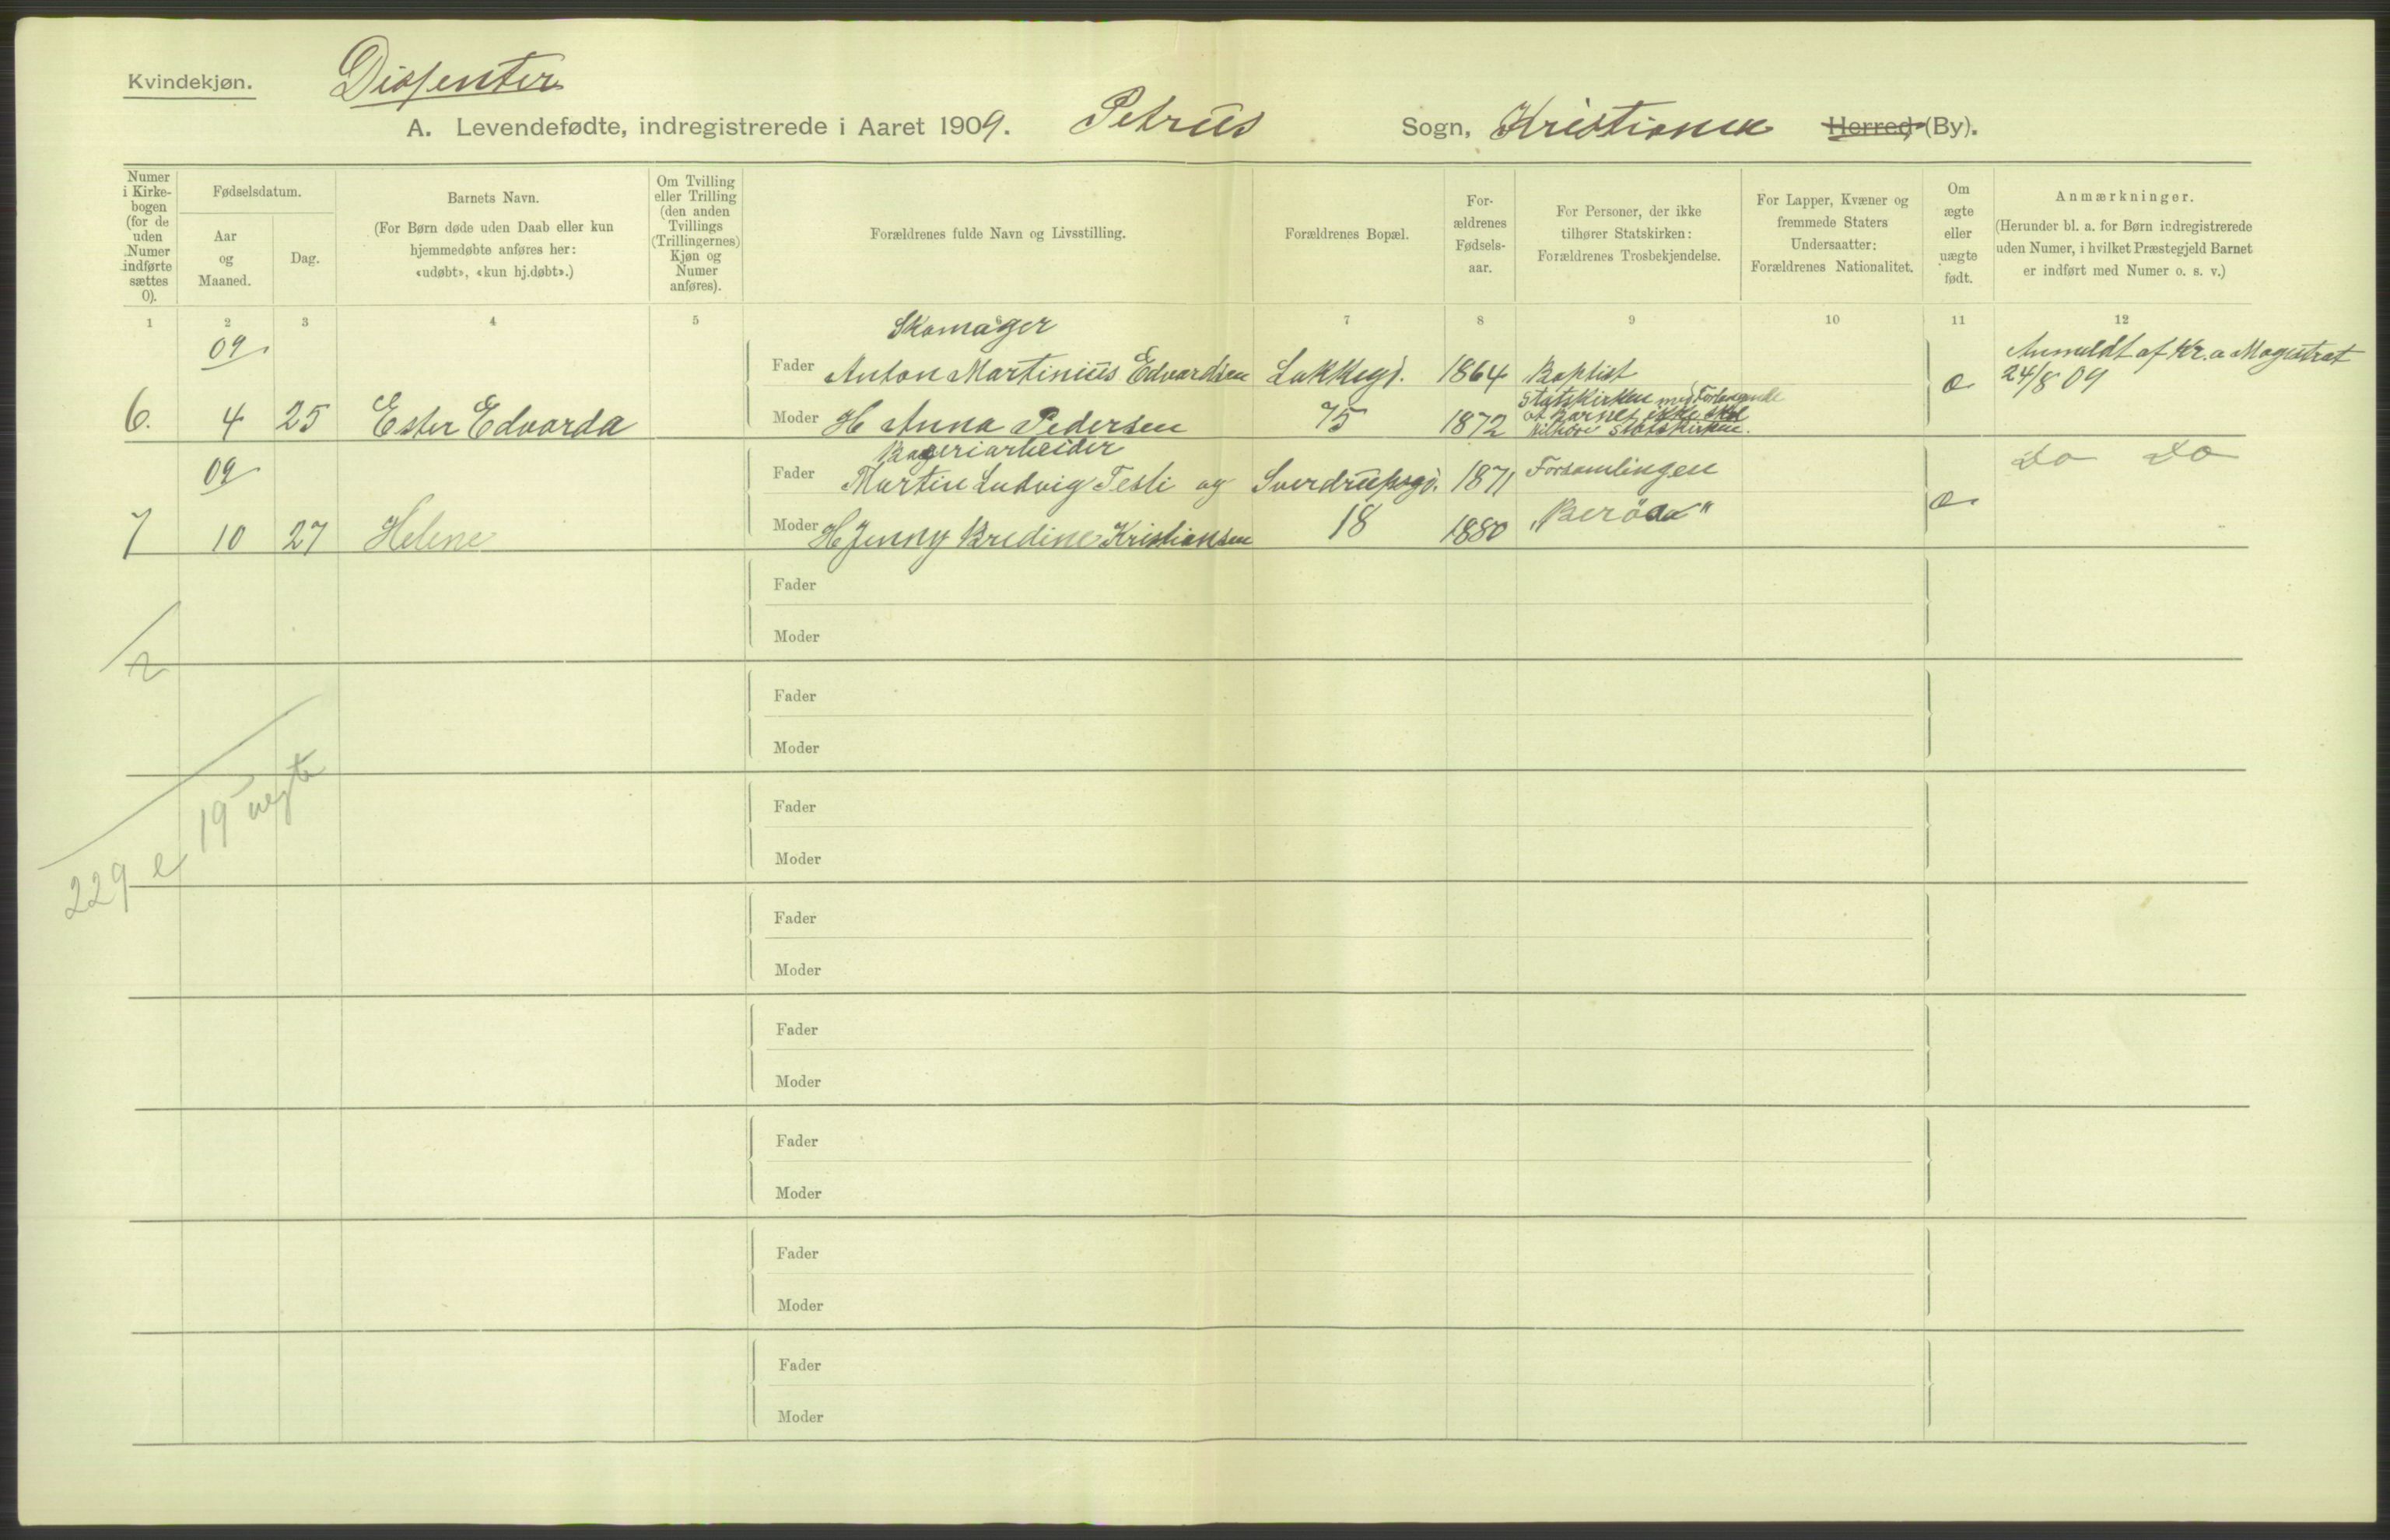 Kvindekjøn.
Dissenter
A. Levendefødte, indregistrerede i Aaret 1909. Petrus Sogn, Kristiania Herred (By).
Numer i Kirkebogen (for de uden Numer indførte sættes 0).
Fødselsdatum.
Aar og Maaned.
Dag.
Barnets Navn.
(For Børn døde uden Daab eller kun hjemmedøbte anføres her: «udøbt», «kun hj.døbt».)
Om Tvilling eller Trilling (den anden Tvillings (Trillingernes) Kjøn og Numer anføres).
Forældrenes fulde Navn og Livsstilling.
Forældrenes Bopæl.
Forældrenes Fødselsaar.
For Personer, der ikke tilhører Statskirken: Forældrenes Trosbekjendelse.
For Lapper, Kvæner og fremmede Staters Undersaatter: Forældrenes Nationalitet.
Om ægte eller uægte født.
Anmærkninger.
(Herunder bl. a. for Børn indregistrerede uden Numer, i hvilket Præstegjeld Barnet er indført med Numer o. s. v.)
1 2 3 4 5 6 7 8 9 10 11 12
09
Skomager
Fader Anton Martinius Edvardsen Lakkegd. 1864 Baptist
Anmeldt af Kr.a Magistrat
24/8 09
6. 4 25 Ester Edvarda
Moder H Anna Pedersen 75 1872
Statskirken med Forlangende
at Barnet ikke skal
tilhøre Statskirken.
æ
09
Bageriarbeider
Fader Martin Ludvig Testi og Sverdrupsgd. 1871 Forsamlingen
Do Do
7 10 27 Helene
Moder H Jenny Bredine Kristiansen 18 1880 "Beröa"
æ
Fader
Moder
2
Fader
Moder
19 uegte
229 e
Fader
Moder
Fader
Moder
Fader
Moder
Fader
Moder
Fader
Moder
Fader
Moder